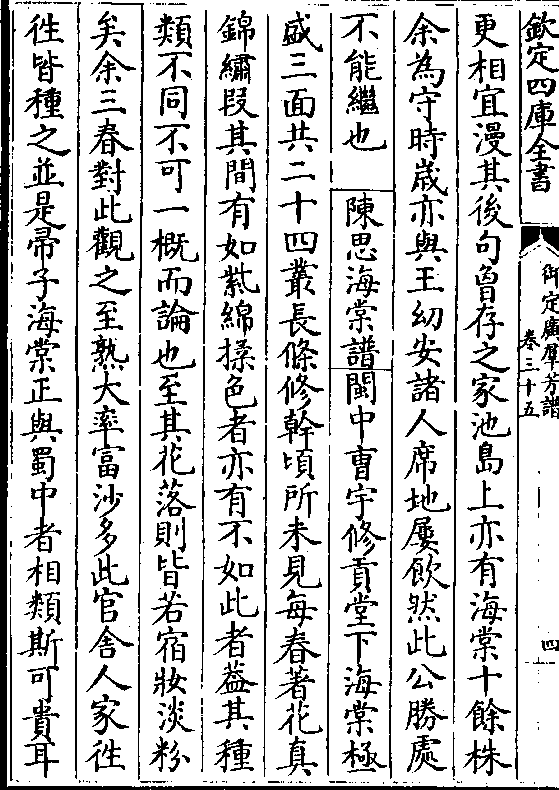 欽定四庫全書
御定廣羣芳譜
卷三十五
四
更相宜漫其後句魯存之家池島上亦有海棠十餘株
余為守時歲亦與王幼安諸人席地屢飲然此公勝處
不能繼也 陳思海棠譜閩中曹宇修貢堂下海棠極
盛三面共二十四叢長條修幹頃所未見每春著花真
錦繡段其間有如紮綿揉色者亦有不如此者葢其種
類不同不可一概而論也至其花落則皆若宿妝淡粉
矣余三春對此觀之至熟大率富沙多此官舍人家往
徃皆種之並是帚子海棠正與蜀中者相類斯可貴耳